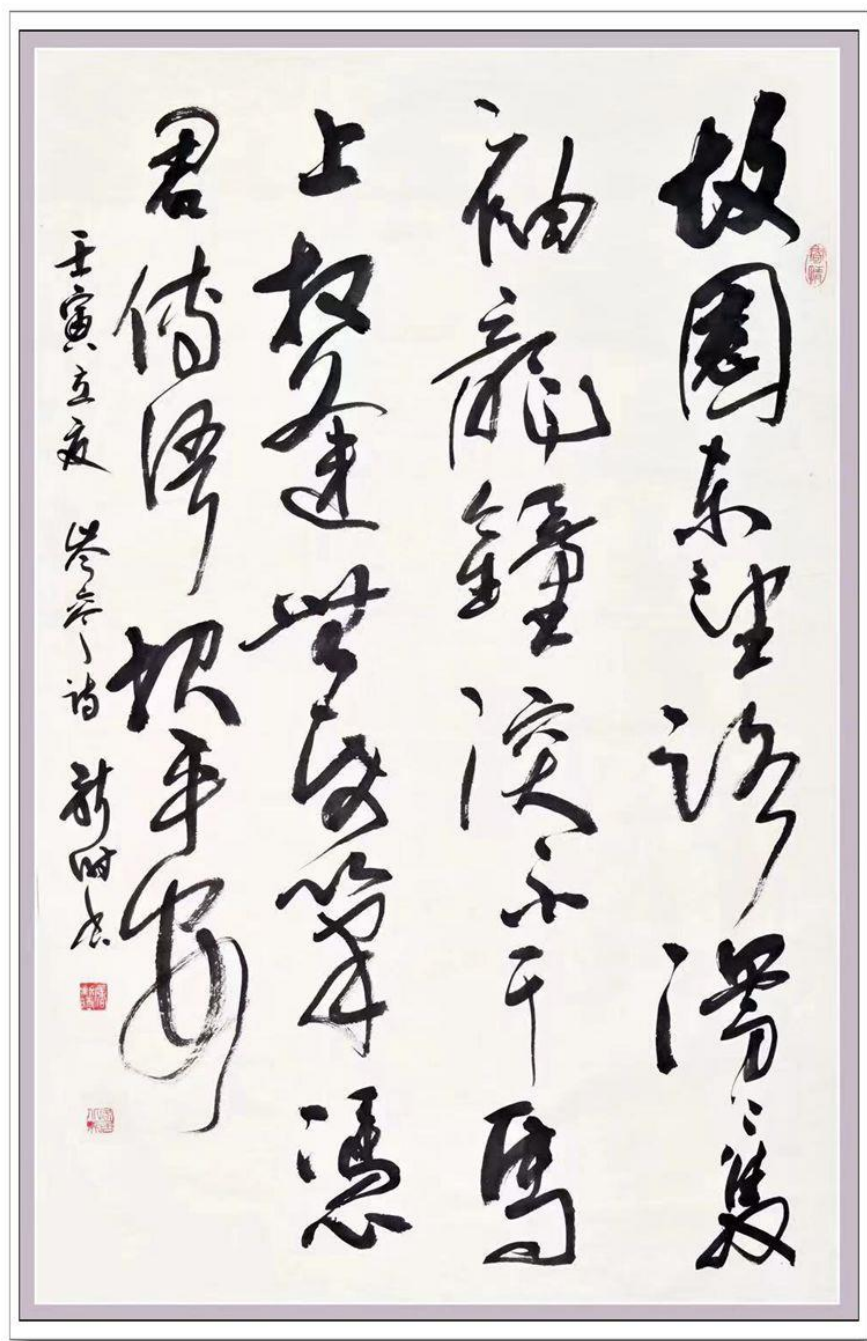 故園東望路漫漫雙
袖龍鐘淚不干馬
上相逢無紙筆憑
君傳語報平安
壬寅立夏 岑參詩 時書